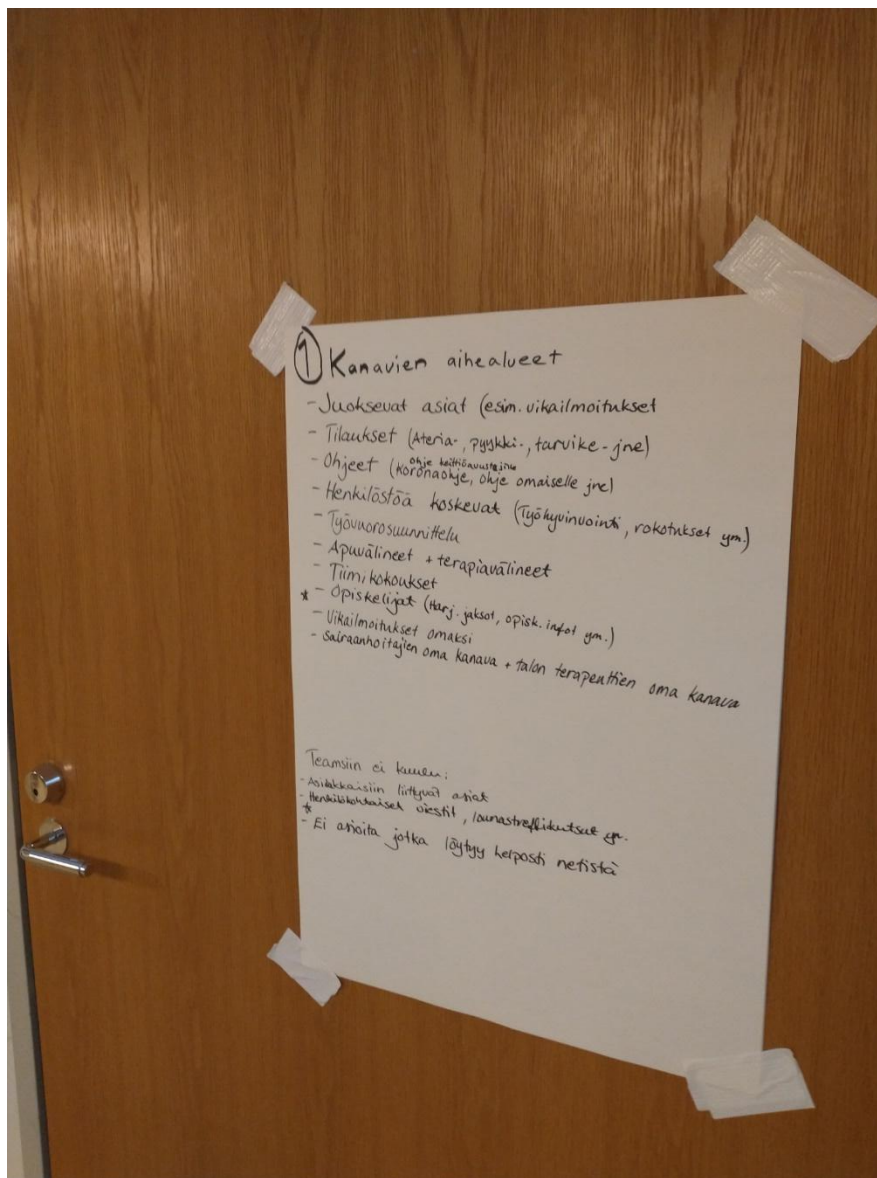 ① Kanavien aihealueet
- Juoksevat asiat (esim. vikailmoitukset
- Tilaukset (Ateria-, pyykki-, tarvike- jne)
ohje keittiöavusteinen
- Ohjeet (koronaohje, ohje omaiselle jne)
- Henkilöstöä koskevat (Työhyvinvointi, rokotukset ym.)
- Työvuorosuunnittelu
- Apuvälineet + terapiavälineet
- Tiimikokoukset
* - Opiskelijat (Harj. jaksot, opisk. infot ym.)
- Vikailmoitukset omaksi
- Sairaanhoitajien oma kanava + talon terapeuttien oma kanava
Teamsiin ei kuulu:
- Asiakkaisiin liittyvät asiat
- Henkilökohtaiset viestit, lounastreffikutsut ym.
*
- Ei asioita jotka löytyy helposti netistä